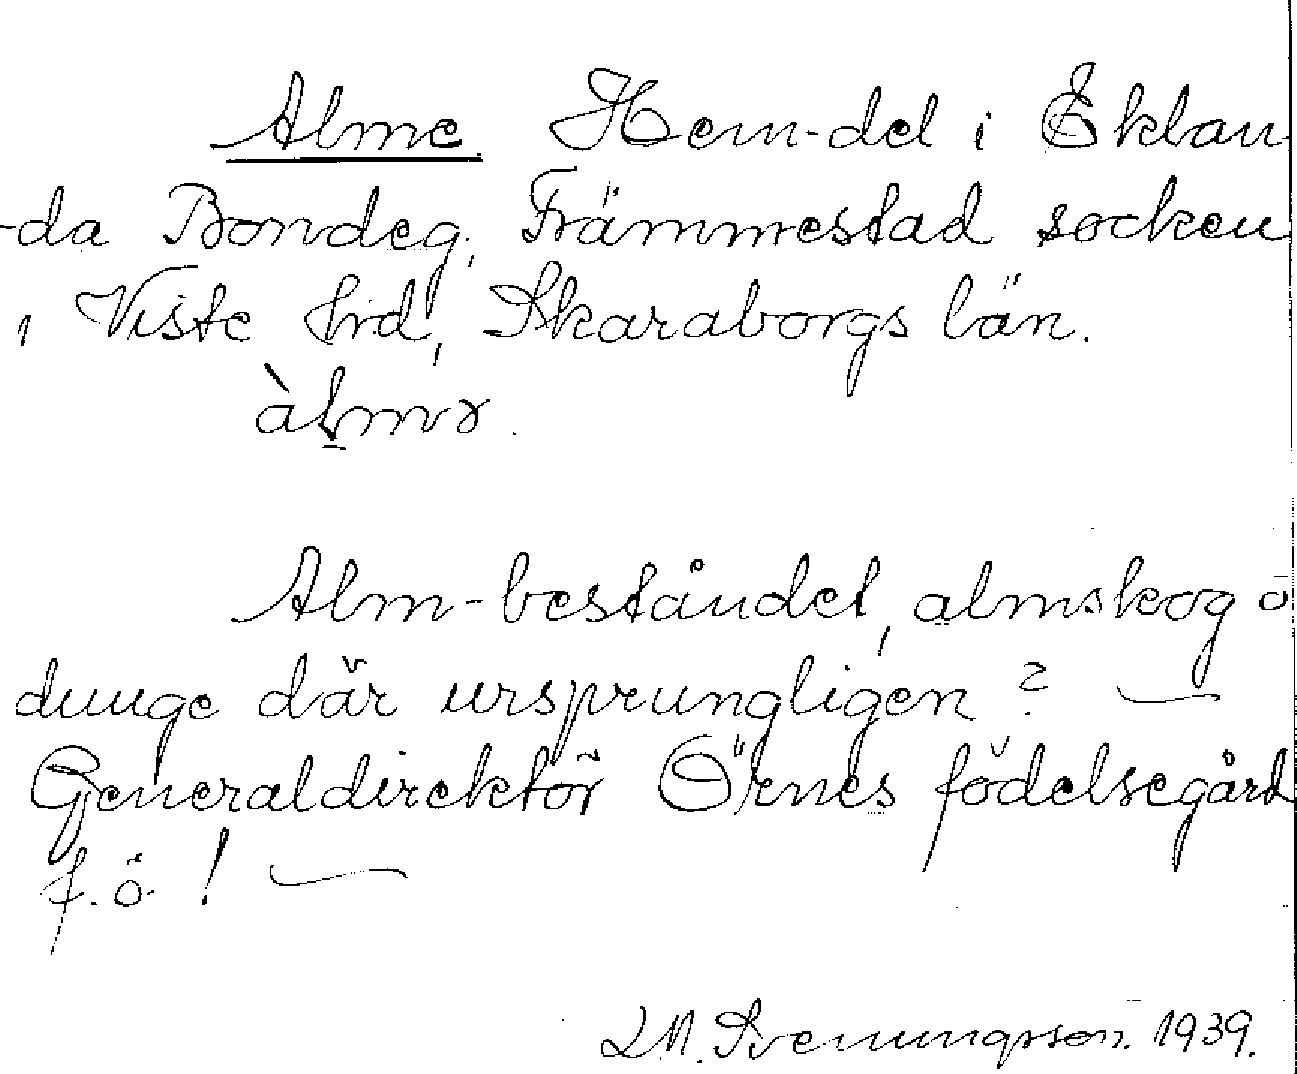 Alme. Hem-del i Eklan
-da Bondeg, Främmestad socken
i Viste hrd, Skaraborgs län.
àlmɤ.
Alm-beståndet, almskog o
dunge där ursprungligen ? —
Generaldirektör Örnes födelsegård
f. ö. ! —
L.M. Svenungsson. 1939.